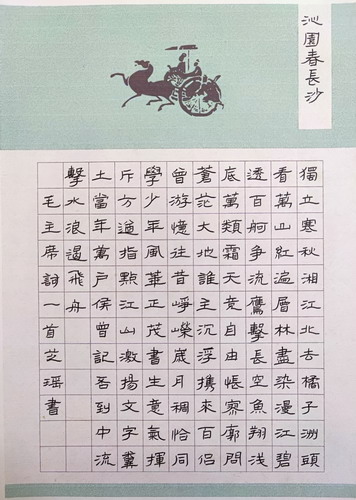 沁園春長沙
獨立寒秋湘江北去橘子洲頭
看萬山紅遍層林盡染漫江碧
透百舸争流鷹擊長空魚翔淺
底萬類霜天竞自由悵寥廓問
蒼茫大地誰主沉浮攜來百侣
曾游憶往昔崢嶸歲月稠恰同
學少年風華正茂書生意氣揮
斥方遒指點江山激揚文字糞
土當年萬户侯曾記否到中流
擊水浪遏飛舟
毛主席詞一首芝瑶書